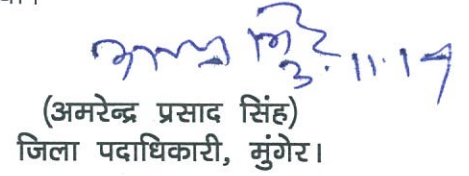 3.11.19
(अमरेन्द्र प्रसाद सिंह)
जिला पदाधिकारी, मुंगेर।